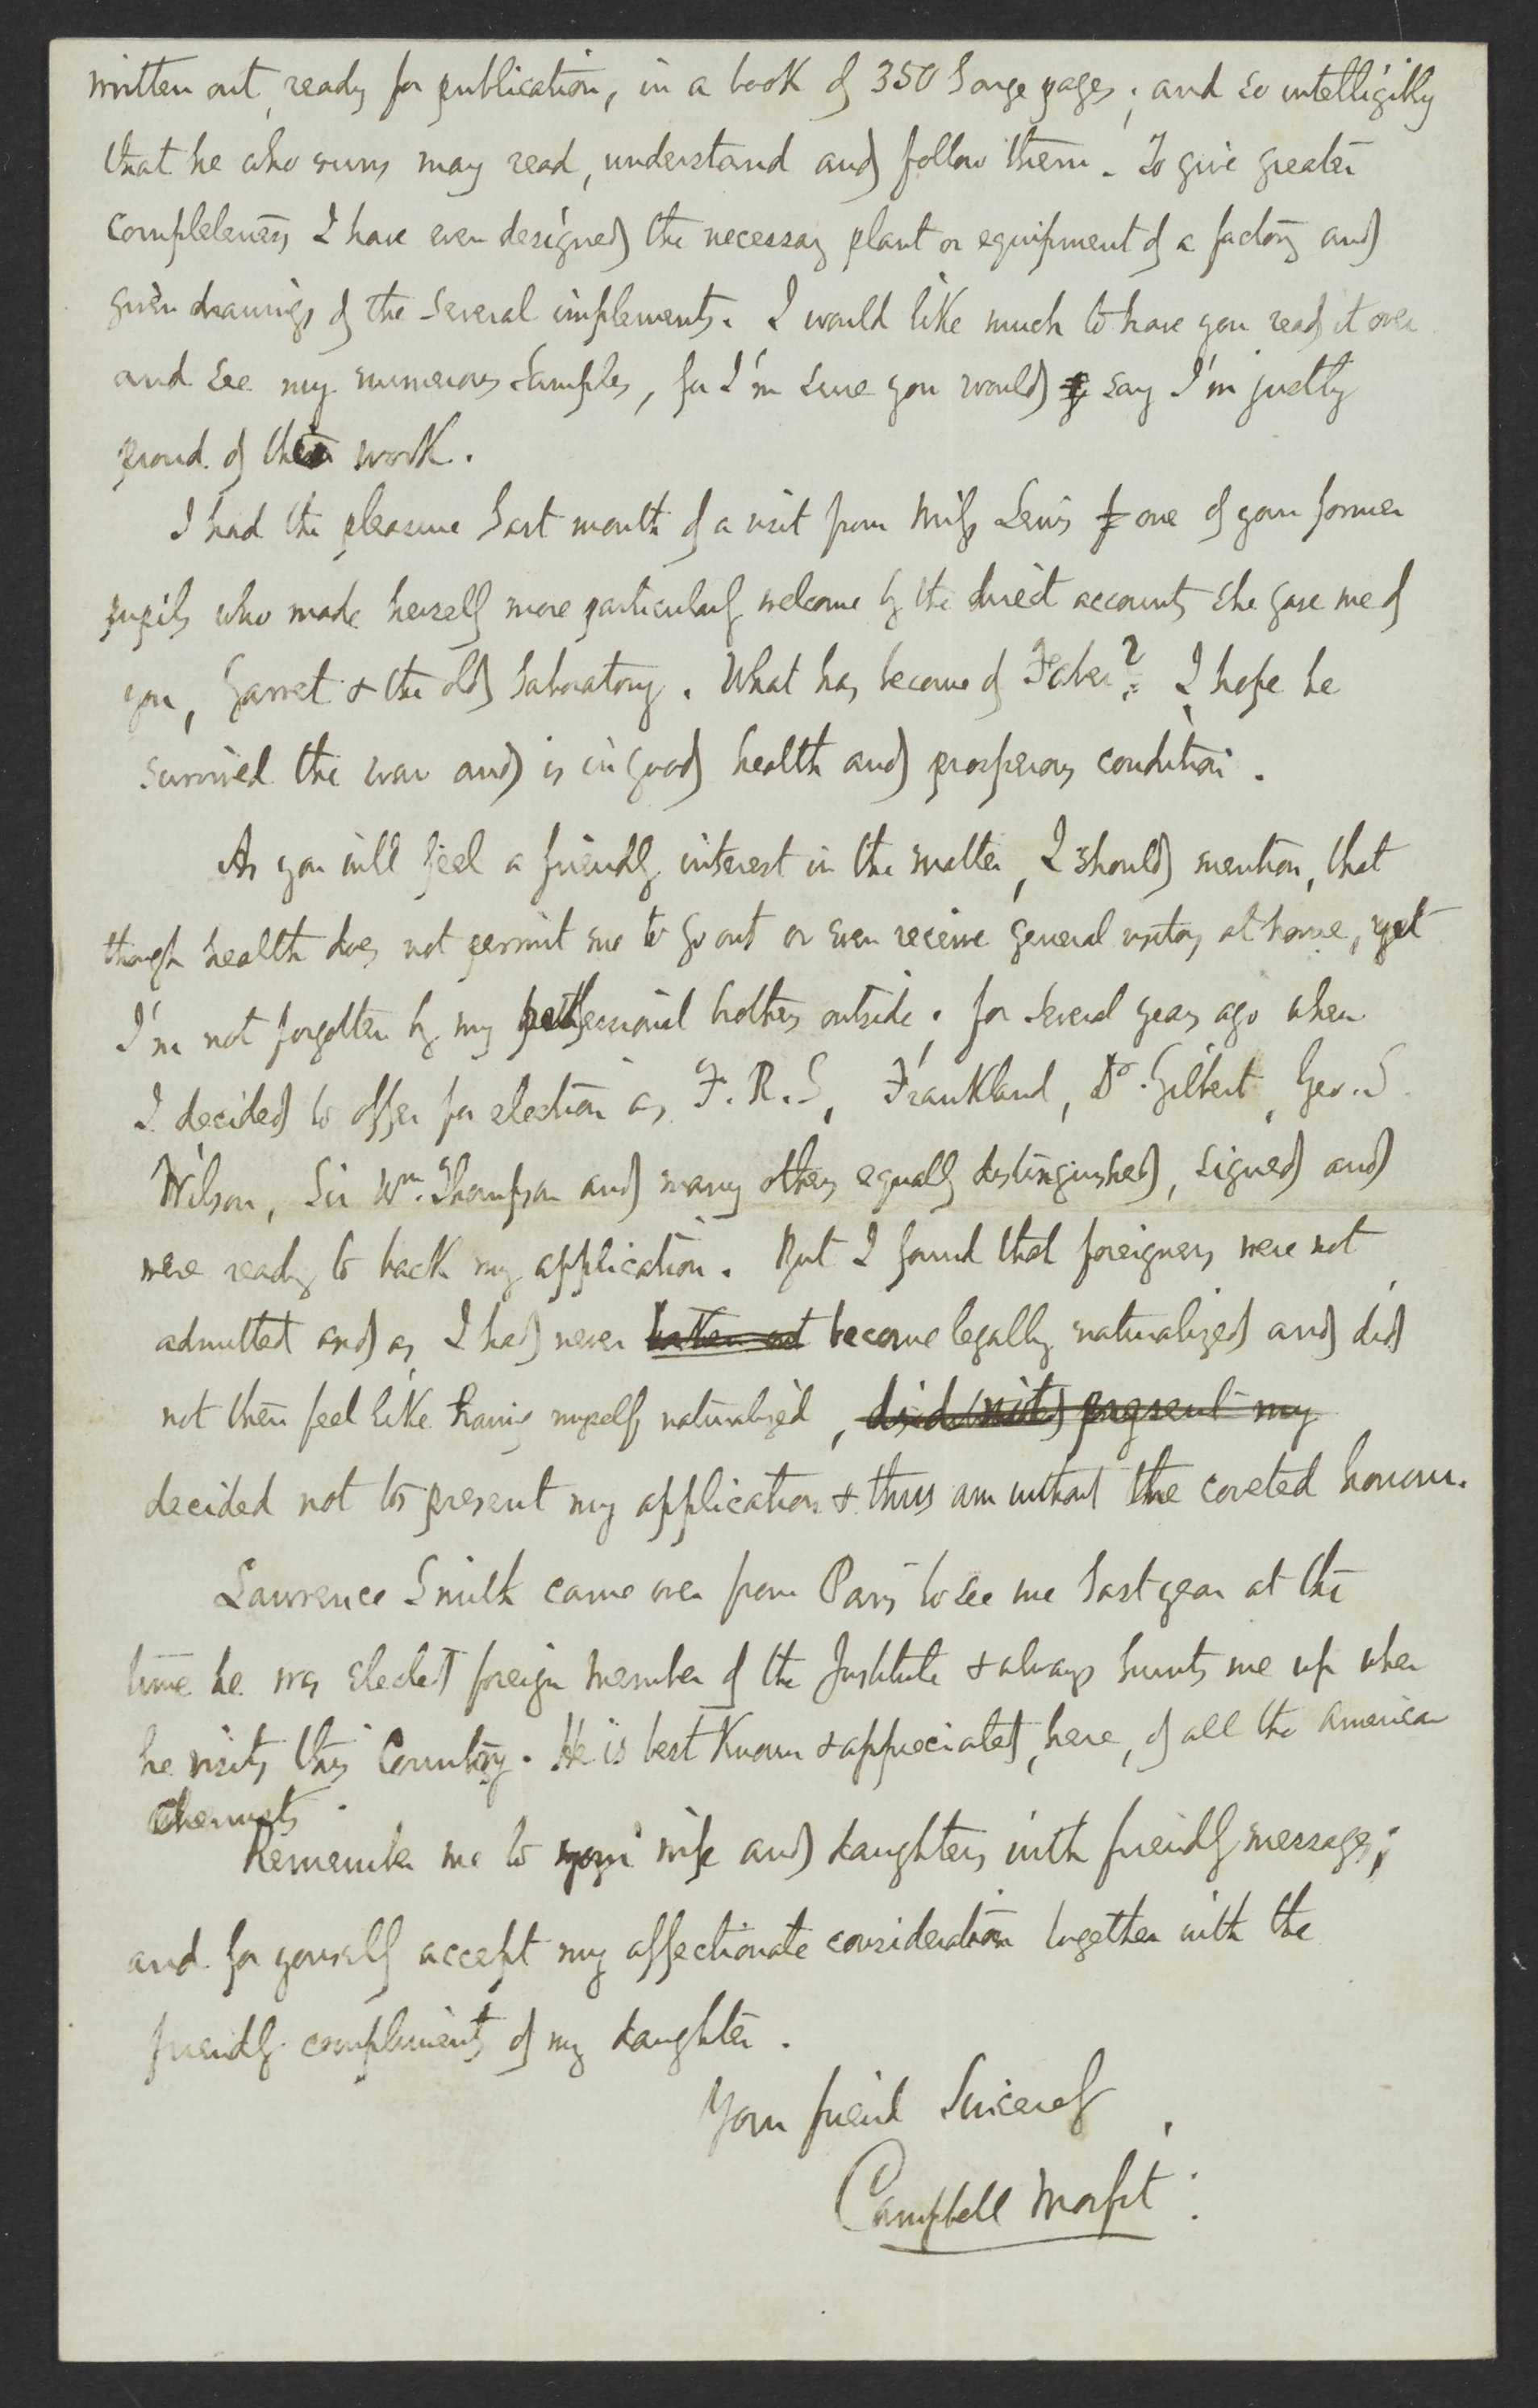 written out, ready for publication, in a book of 350 large pages; and so intelligibly
that he who runs may read, understand and follow them. To give greater
completeness I have even designed the necessary plant or equipment of a factory and
given drawings of the several implements. I would like much to have you read it over
and see my numerous samples, for I'm sure you would say I'm justly
proud of the work.
I had the pleasure last month of a visit from Miss Lewis one of your former
pupils who made herself more particularly welcome by the direct accounts she gave me of
you, Garret & the old laboratory. What has become of Faber? I hope he
survived the war and is in good health and prosperous condition.
As you will feel a friendly interest in the matter, I should mention, that
though health does not permit me to go out or even receive general visitors at home, yet
I'm not forgotten by my professional brothers outside; for several years ago when
I decided to offer for election as F.R.S, Frankland, Dr. Gilbert, Geo. S.
Wilson, Sir Wm. Thompson and many others equally distinguished, signed and
were ready to back my application. But I found that foreigners were not
admitted and as I had never taken out become legally naturalized and did
not then feel like having myself naturalized, did not present my
decided not to present my application & thus am without the coveted honour.
Lawrence Smith came over from Paris to see me last year at the
time he was elected foreign member of the Institute & always hunts me up when
he visits this Country. He is best known & appreciated, here, of all the American
chemists.
Remember me to your wife and daughters with friendly messages;
and for yourself accept my affectionate consideration together with the
friendly compliments of my daughter.
Your friend Sincerely
Campbell Morfit